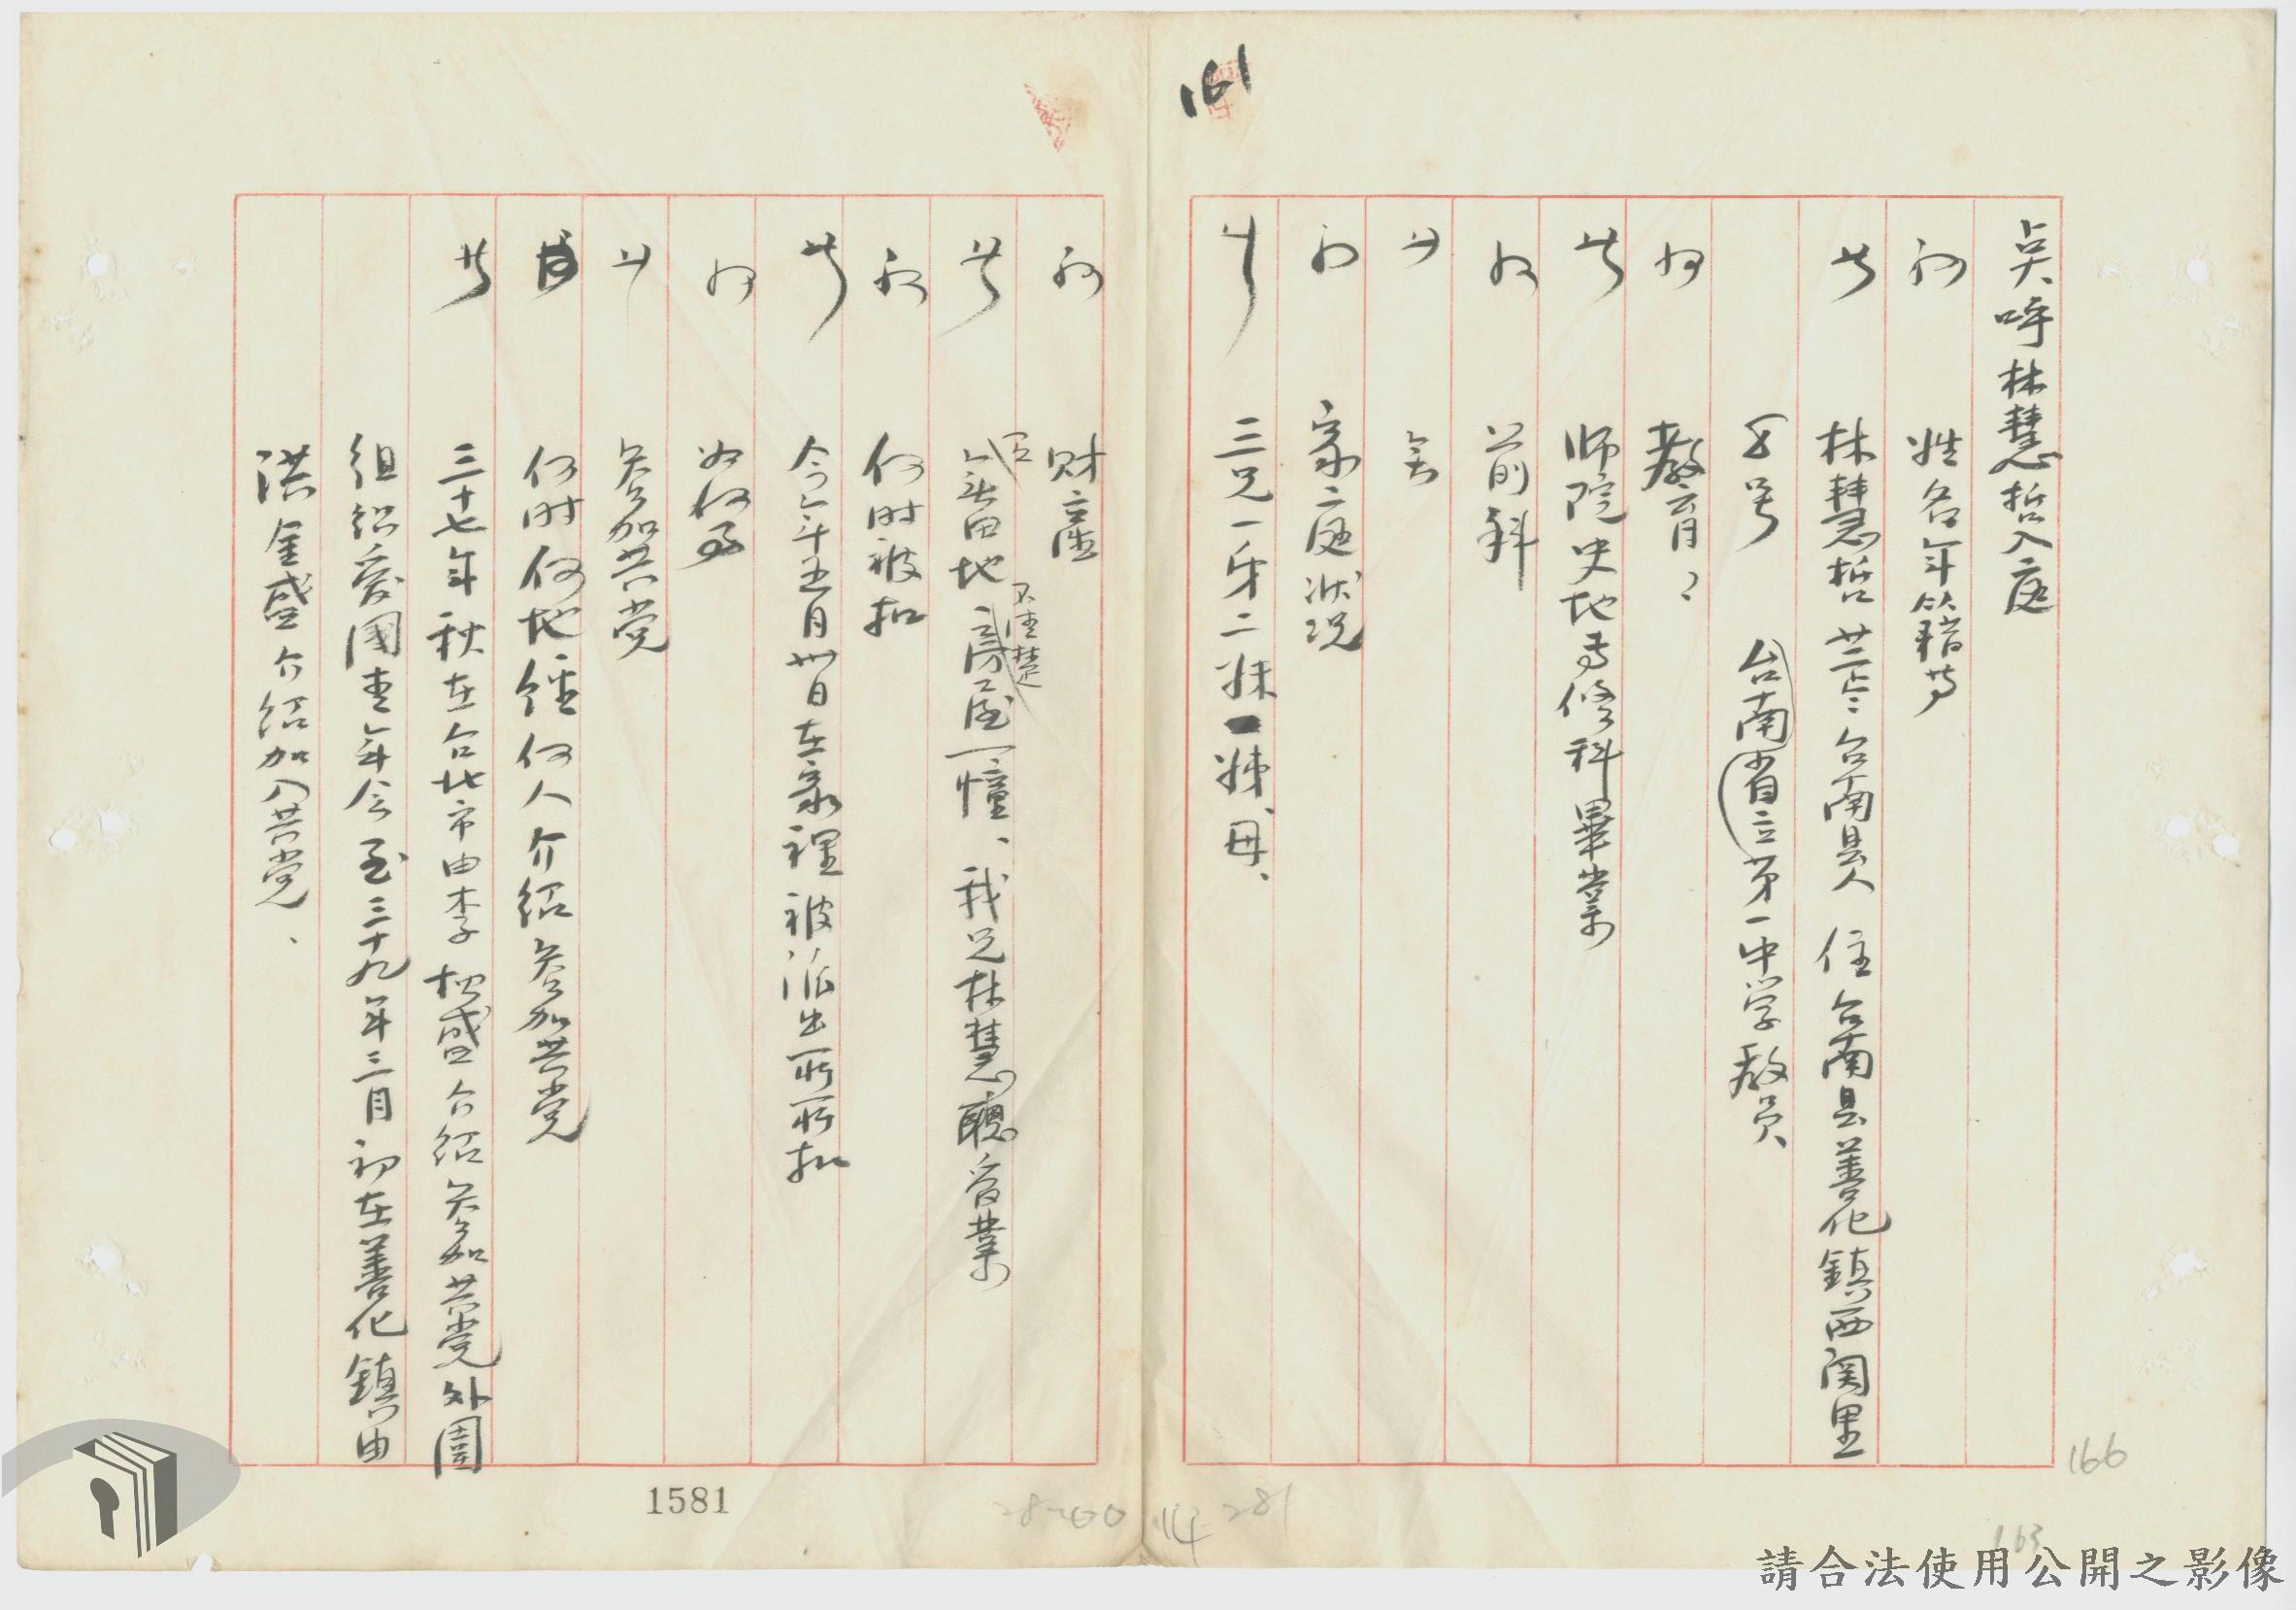 161
点呼林慧哲入庭
問 姓名年籍等
答 林慧哲 廿三 台南县人 住台南县善化鎮西関里
8号 台南省立第一中学教員
問 教育？
答 師院史地专修科畢業
問 前科
答 無
問 家庭状况
答 三兄一弟二妹一姊、母、
問 財產
答 無田地不清楚房屋一幢、我兄林慧聰 業
問 何时被扣
答 今年五月卅日在家裡被派出所所扣
問 為何事
答 参加共党
問 何时何地經何人介紹参加共党
答 三十七年秋在台北市由李 盛介紹参加共党外围
组织爱國青年会至三十九年三月初在善化鎮由
洪金盛介紹加入共党、
1581
28200
114
281
166
163
請合法使用公開之影像